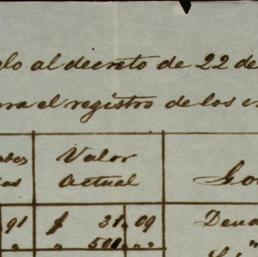 glo al decreto de 22 de
ara el registro de los
Valor
Actual
.91 $ 31.09
" " 501 " "